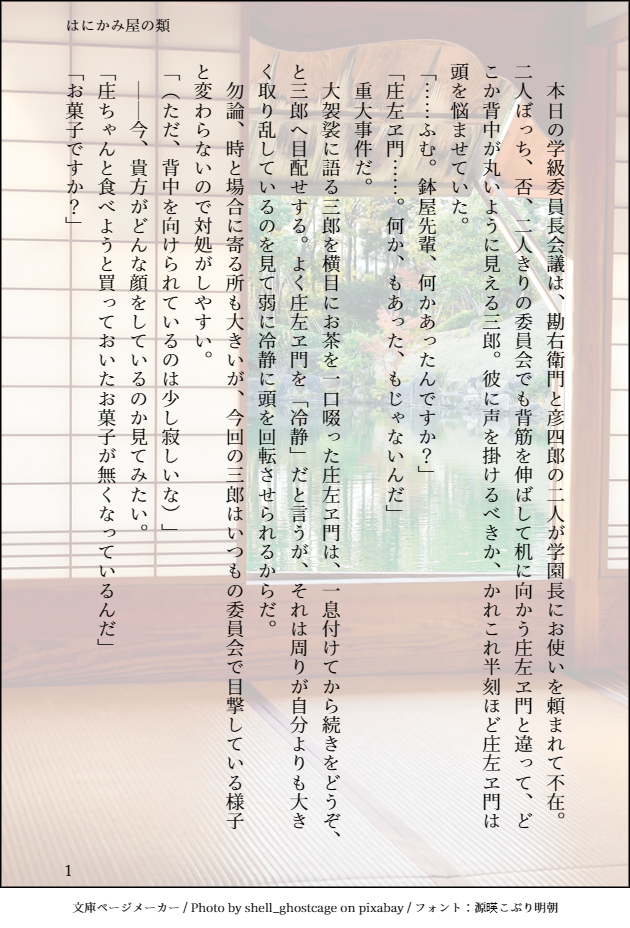 はにかみ屋の類
本日の学級委員長会議は、勘右衛門と彦四郎の二人が学園長にお使いを頼まれて不在。
二人ぼっち、否、二人きりの委員会でも背筋を伸ばして机に向かう庄左ヱ門と違って、ど
こか背中が丸いように見える三郎。彼に声を掛けるべきか、かれこれ半刻ほど庄左ヱ門は
頭を悩ませていた。
「……ふむ。鉢屋先輩、何かあったんですか？」
「庄左ヱ門……。何か、もあった、もじゃないんだ」
重大事件だ。
大袈裟に語る三郎を横目にお茶を一口啜った庄左ヱ門は、一息付けてから続きをどうぞ、
と三郎へ目配せする。よく庄左ヱ門を「冷静」だと言うが、それは周りが自分よりも大き
く取り乱しているのを見て弱に冷静に頭を回転させられるからだ。
勿論、時と場合に寄る所も大きいが、今回の三郎はいつもの委員会で目撃している様子
と変わらないので対処がしやすい。
「（ただ、背中を向けられているのは少し寂しいな）」
――今、貴方がどんな顔をしているのか見てみたい。
「庄ちゃんと食べようと買っておいたお菓子が無くなっているんだ」
「お菓子ですか？」
1
文庫ページメーカー / Photo by shell_ghostcage on pixabay / フォント：源暎こぶり明朝